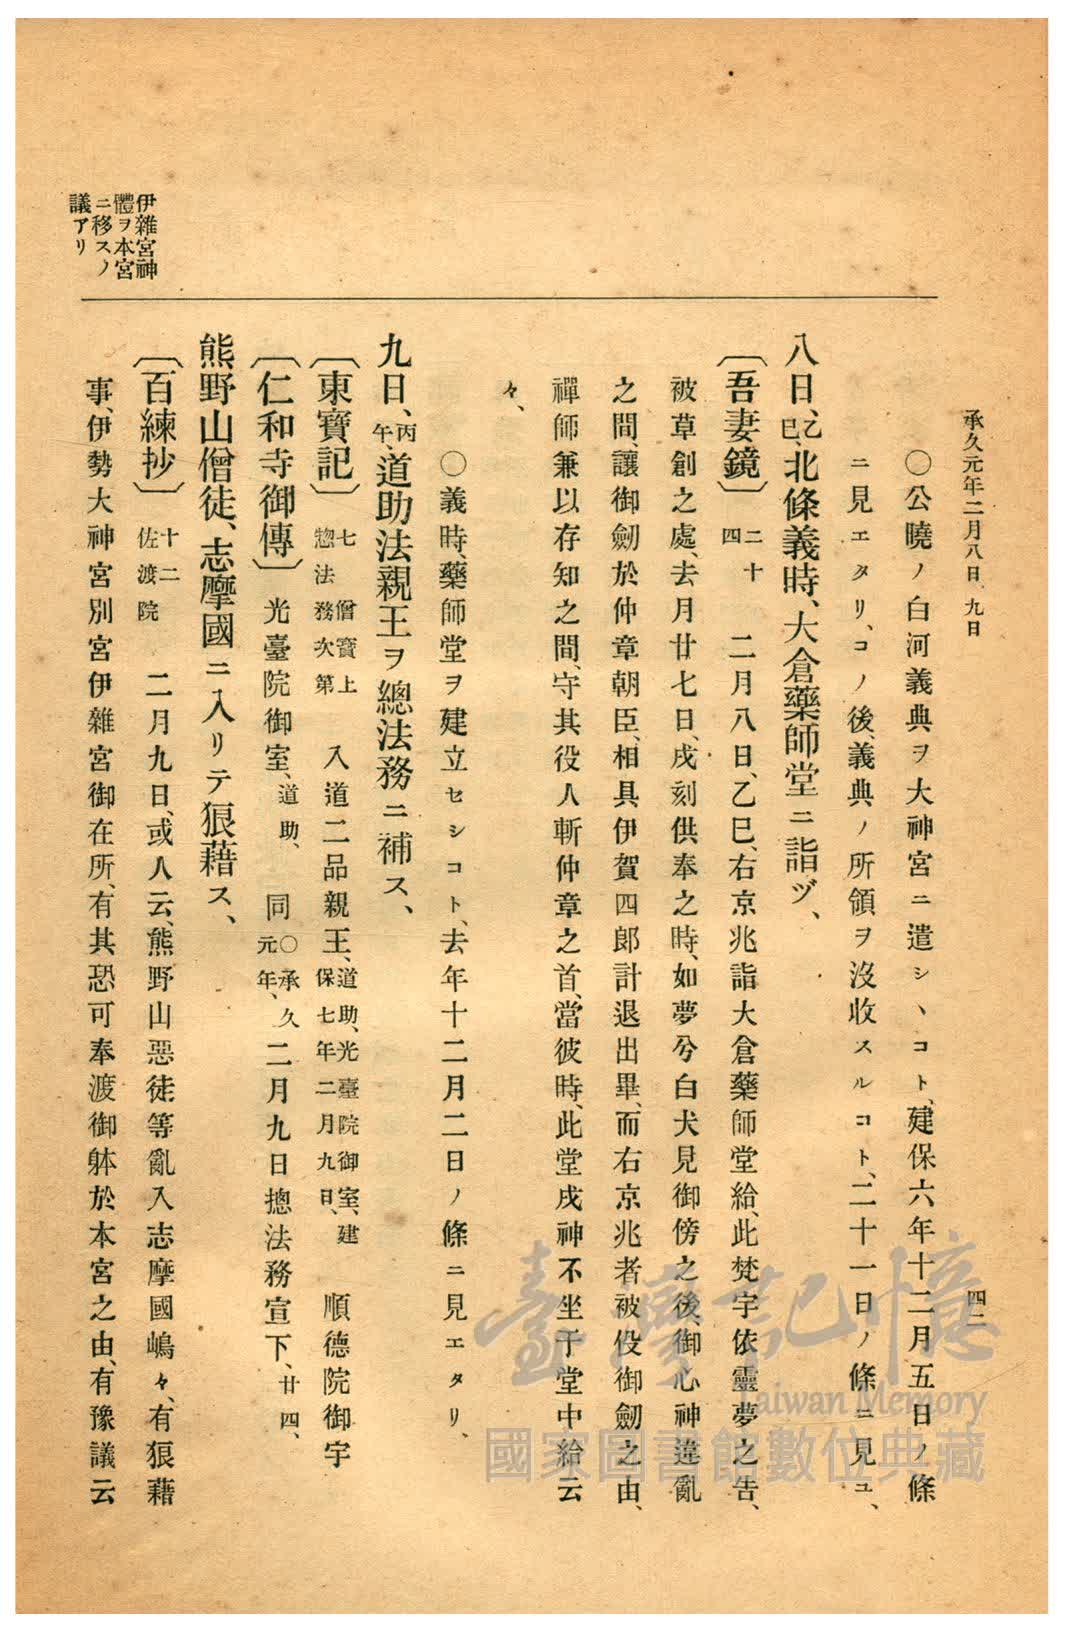 承久元年二月八日、九日
四二
〇公曉ノ白河義典ヲ大神宮ニ遣シヽコト、建保六年十二月五日ノ條
ニ見エタリ、コノ後、義典ノ所領ヲ沒收スルコト、二十一日ノ條ニ見ユ、
八日、乙巳、北條義時、大倉藥師堂ニ詣ヅ、
〔吾妻鏡〕二十四 二月八日、乙巳、右京兆詣大倉藥師堂給、此梵宇依靈夢之告、
被草創之處、去月廿七日、戌刻供奉之時、如夢兮白犬見御傍之後、御心神違亂
之間、讓御劒於仲章朝臣、相具伊賀四郎計退出畢、而右京兆者被役御劒之由、
禪師兼以存知之間、守其役人斬仲章之首、當彼時、此堂戌神不坐于堂中給云
々、
〇義時、藥師堂ヲ建立セシコト、去年十二月二日ノ條ニ見エタリ、
九日、丙午、道助法親王ヲ總法務ニ補ス、
〔東寶記〕七 僧寶上 惣法務次第 入道二品親王、道助、光臺院御室、建保七年二月九日、 順德院御宇
〔仁和寺御傳〕 光臺院御室、道助、 同〇承久元年、二月九日摠法務宣下、廿四、
熊野山僧徒、志摩國ニ入リテ狼藉ス、
〔百練抄〕十二 佐渡院 二月九日、或人云、熊野山惡徒等亂入志摩國嶋々、有狼藉
事、伊勢大神宮別宮伊雜宮御在所、有其恐可奉渡御躰於本宮之由、有豫議云
伊雜宮神
體ヲ本宮
ニ移スノ
議アリ
臺灣記憶
Taiwan Memory
國家圖書館數位典藏